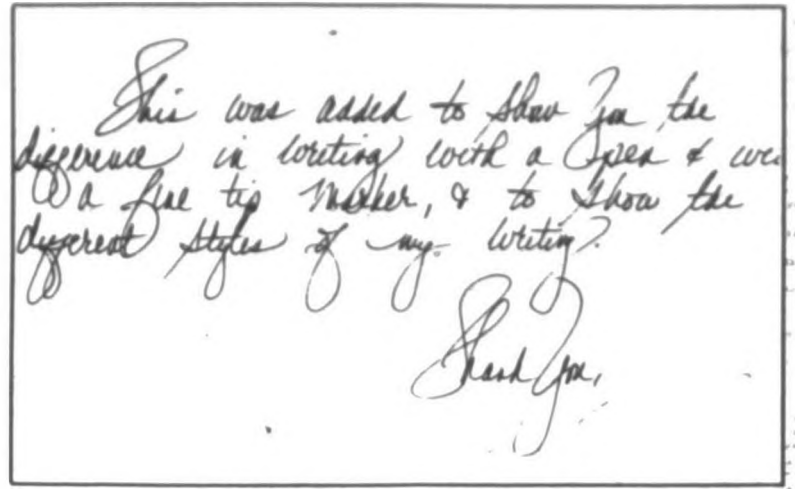 This was added to show you the
difference in writing with a pen &
a fine tip marker, & to show the
different styles of my writing.
Thank you,